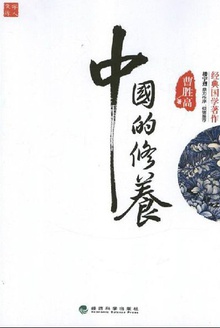 中國的修養
曹胜高
著
经典国学著作
经济科学出版社
Economic Science Press